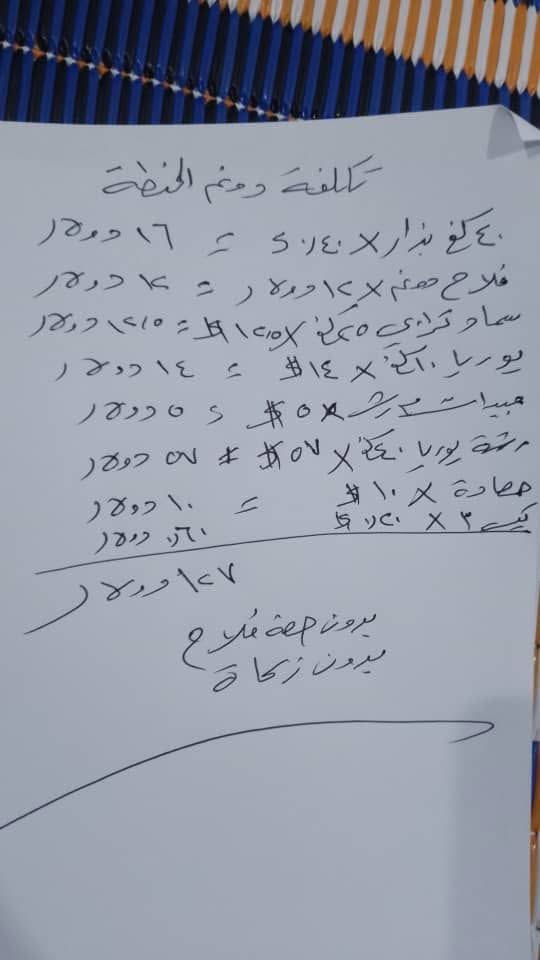 تكلفة دونم الحنطة
٤٠ كغ بذار × ٠.٤٠ = ١٦ دولار
فلاح دونم × ١٢ دولار = ١٢ دولار
سماد ترابي ٢٥ كغ × ١٢.٥ $ = ١٢.٥ دولار
يوريا ٢٠ كغ × ١٤ $ = ١٤ دولار
مبيدات ورش × ٥ $ = ٥ دولار
يوريا ٤٠ كغ × ٥٧ $ = ٥٧ دولار
حصادة × ١٠ $ = ١٠ دولار
كيس ٣ × ٠.٢٠ $ ٠.٦٠ دولار
١٢٧ دولار
بدون حصة فلاح
بدون زكاة